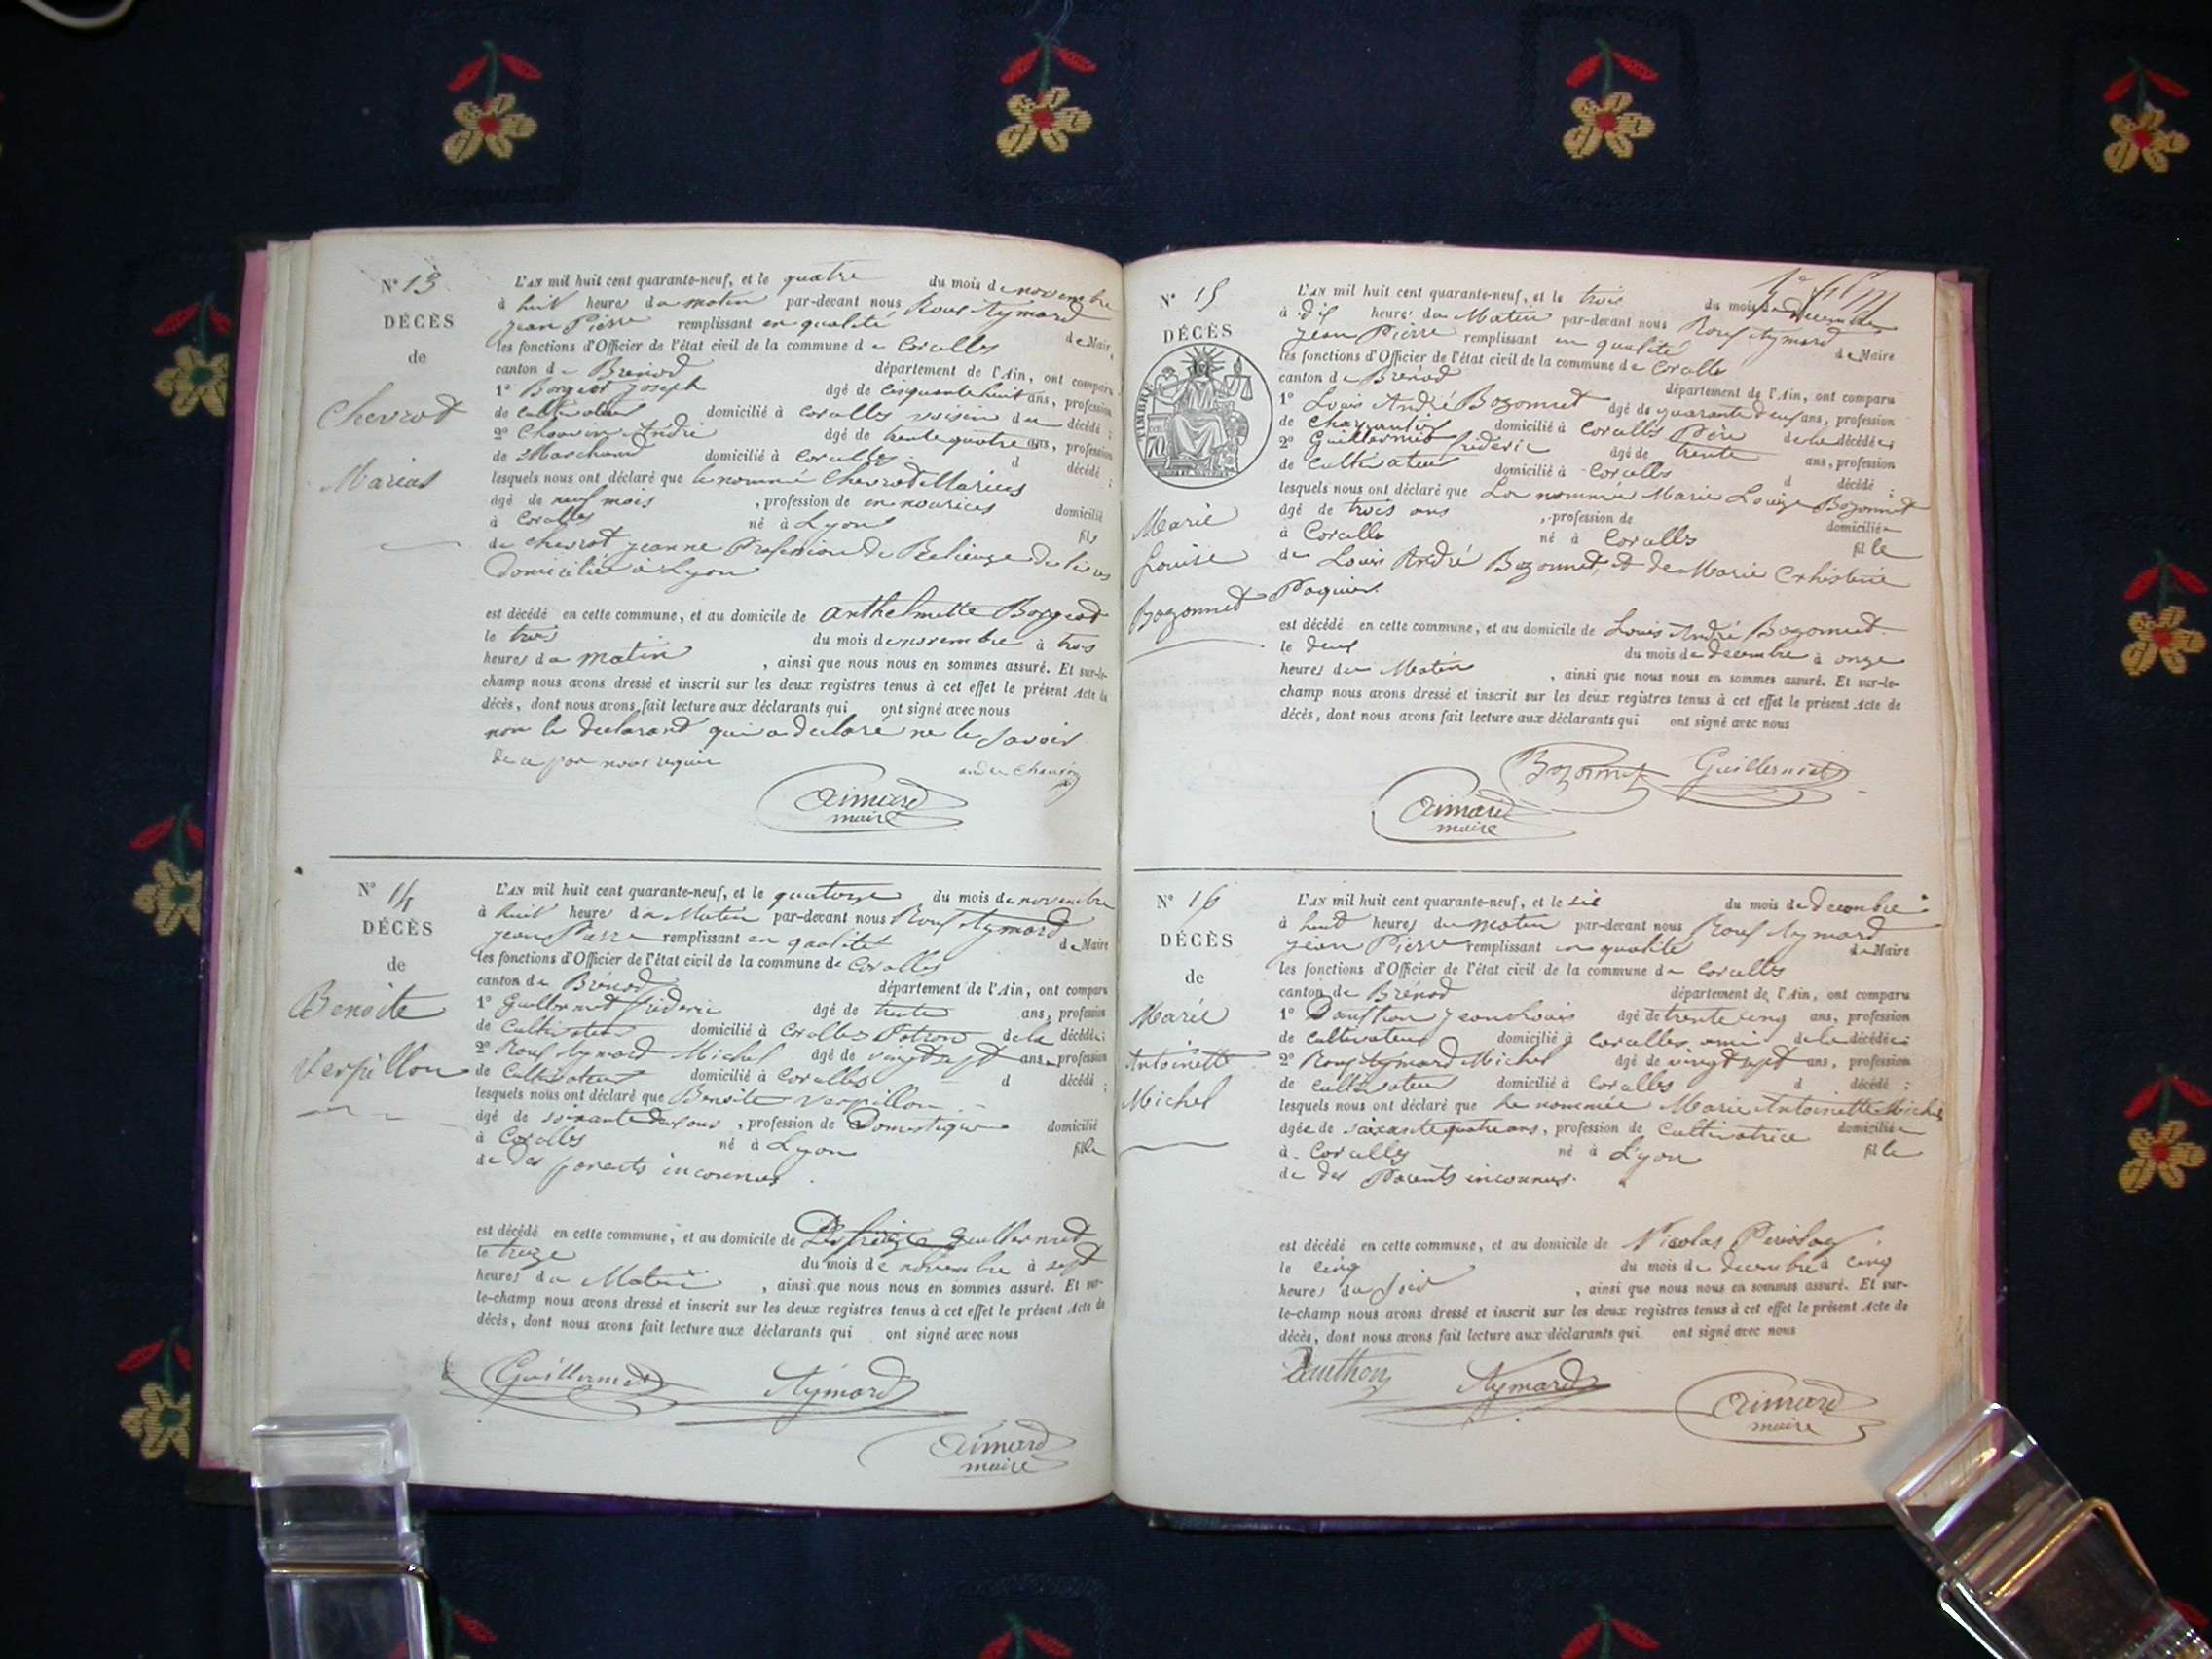 N° 13
DÉCÈS
de
Chevrot
Marius
L'AN mil huit cent quarante-neuf, et le quatre du mois de novembre
à huit heures du matin par-devant nous Roux Aymard
jean Pierre remplissant en qualité de Maire
les fonctions d'Officier de l'état civil de la commune de Corcelles
canton de Brenod département de l'Ain, ont comparu
1° Borgeot joseph âgé de cinquante huit ans, profession
de cultivateur domicilié à corcelles voisin du décédé ;
2° Chauvin André âgé de trente quatre ans, profession
de Marchand domicilié à corcelles d décédé ;
lesquels nous ont déclaré que le nommé Chevrot Marius
âgé de neuf mois , profession de en nourices domicilié
à Corcelles né à Lyon fils
de chevrot jeanne Profession de Relieuze de livres
Domiciliée à Lyon
est décédé en cette commune, et au domicile de anthelmette Borgeot
le trois du mois de novembre à trois
heures du matin , ainsi que nous nous en sommes assuré. Et sur-le-
champ nous avons dressé et inscrit sur les deux registres tenus à cet effet le présent Acte de
décès, dont nous avons fait lecture aux déclarants qui ont signé avec nous
non le declarant qui a declaré ne le savoir
de ce par nous requis
andré chauvin
aimard
maire
N° 14
DÉCÈS
de
Benoite
Verpillon
L'AN mil huit cent quarante-neuf, et le quatorze du mois de novembre
à huit heures du Matin par-devant nous Roux Aymard
jean Pierre remplissant en qualité de Maire
les fonctions d'Officier de l'état civil de la commune de Corcelles
canton de Brénod département de l'Ain, ont comparu
1° Guillermet frideric âgé de trente ans, profession
de Cultivateur domicilié à Corcelles Patron de la décédée ;
2° Roux Aymard Michel âgé de vingt sept ans, profession
de Cultivateur domicilié à Corcelles d décédé ;
lesquels nous ont déclaré que Benoite Verpillon
âgé de soixante deux ans , profession de Domestique domicilié
à Corcelles né à Lyon fille
de des parents inconnus
est décédé en cette commune, et au domicile de Guillermet
le treize du mois de novembre à sept
heures du Matin , ainsi que nous nous en sommes assuré. Et sur-
le-champ nous avons dressé et inscrit sur les deux registres tenus à cet effet le présent Acte de
décès, dont nous avons fait lecture aux déclarants qui ont signé avec nous
Guillermet Aymard
aimard
maire
N° 15
DÉCÈS
TIMBRE
Marie
Louise
Bozonnet
L'AN mil huit cent quarante-neuf, et le trois du mois de decembre
à dix heures du Matin par-devant nous Roux Aymard
jean Pierre remplissant en qualité de Maire
les fonctions d'Officier de l'état civil de la commune de Corcelles
canton de Brénod département de l'Ain, ont comparu
1° Louis André Bozonnet âgé de quarante deux ans, profession
de Charpantier domicilié à Corcelles Père de la décédée ;
2° Guillermet frideric âgé de trente ans, profession
de Cultivateur domicilié à Corcelles d décédé ;
lesquels nous ont déclaré que La nommée Marie Louize Bozonnet
âgé de trois ans , profession de domiciliée
à Corcelles né à Corcelles fille
de Louis André Bozonnet, et de Marie Crhistine
Paquier.
est décédé en cette commune, et au domicile de Louis André Bozonnet
le deux du mois de decembre à onze
heures du Matin , ainsi que nous nous en sommes assuré. Et sur-le-
champ nous avons dressé et inscrit sur les deux registres tenus à cet effet le présent Acte de
décès, dont nous avons fait lecture aux déclarants qui ont signé avec nous
Bozonnet Guillermet
aimard
maire
N° 16
DÉCÈS
de
Marie
Antoinette
Michel
L'AN mil huit cent quarante-neuf, et le six du mois de decembre
à huit heures du matin par-devant nous Roux Aymard
jean Pierre remplissant en qualité de Maire
les fonctions d'Officier de l'état civil de la commune de Corcelles
canton de Brénod département de l'Ain, ont comparu
1° Dauthon jean Louis âgé de trente cinq ans, profession
de cultivateur domicilié à Corcelles ami de la décédée ;
2° Roux Aymard Michel âgé de vingt sept ans, profession
de cultivateur domicilié à Corcelles d décédé ;
lesquels nous ont déclaré que La nommée Marie Antoinette Michel
âgée de soixante quatre ans, profession de Cultivatrice domiciliée
à Corcelles né à Lyon fille
de des Parents inconnus.
est décédé en cette commune, et au domicile de Nicolas
le cinq du mois de decembre à cinq
heures du Soir , ainsi que nous nous en sommes assuré. Et sur-
le-champ nous avons dressé et inscrit sur les deux registres tenus à cet effet le présent Acte de
décès, dont nous avons fait lecture aux déclarants qui ont signé avec nous
Dauthon Aymard
aimard
maire